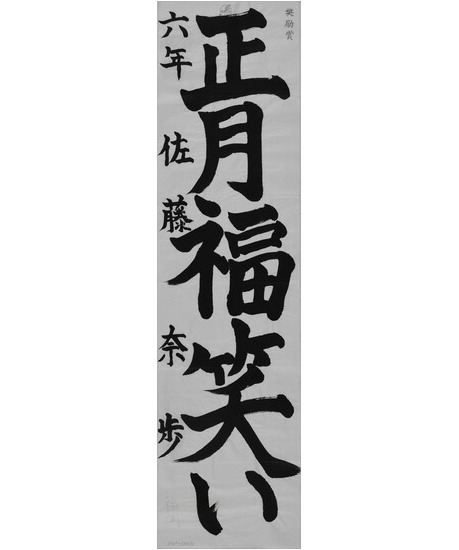 奨励賞
正月福笑い
六年 佐藤奈歩